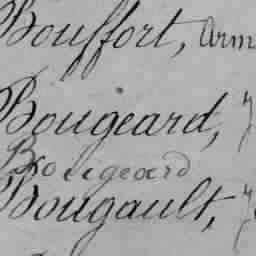 Bouffort, Arm
Bougeard,
Bougeard
Bougault,